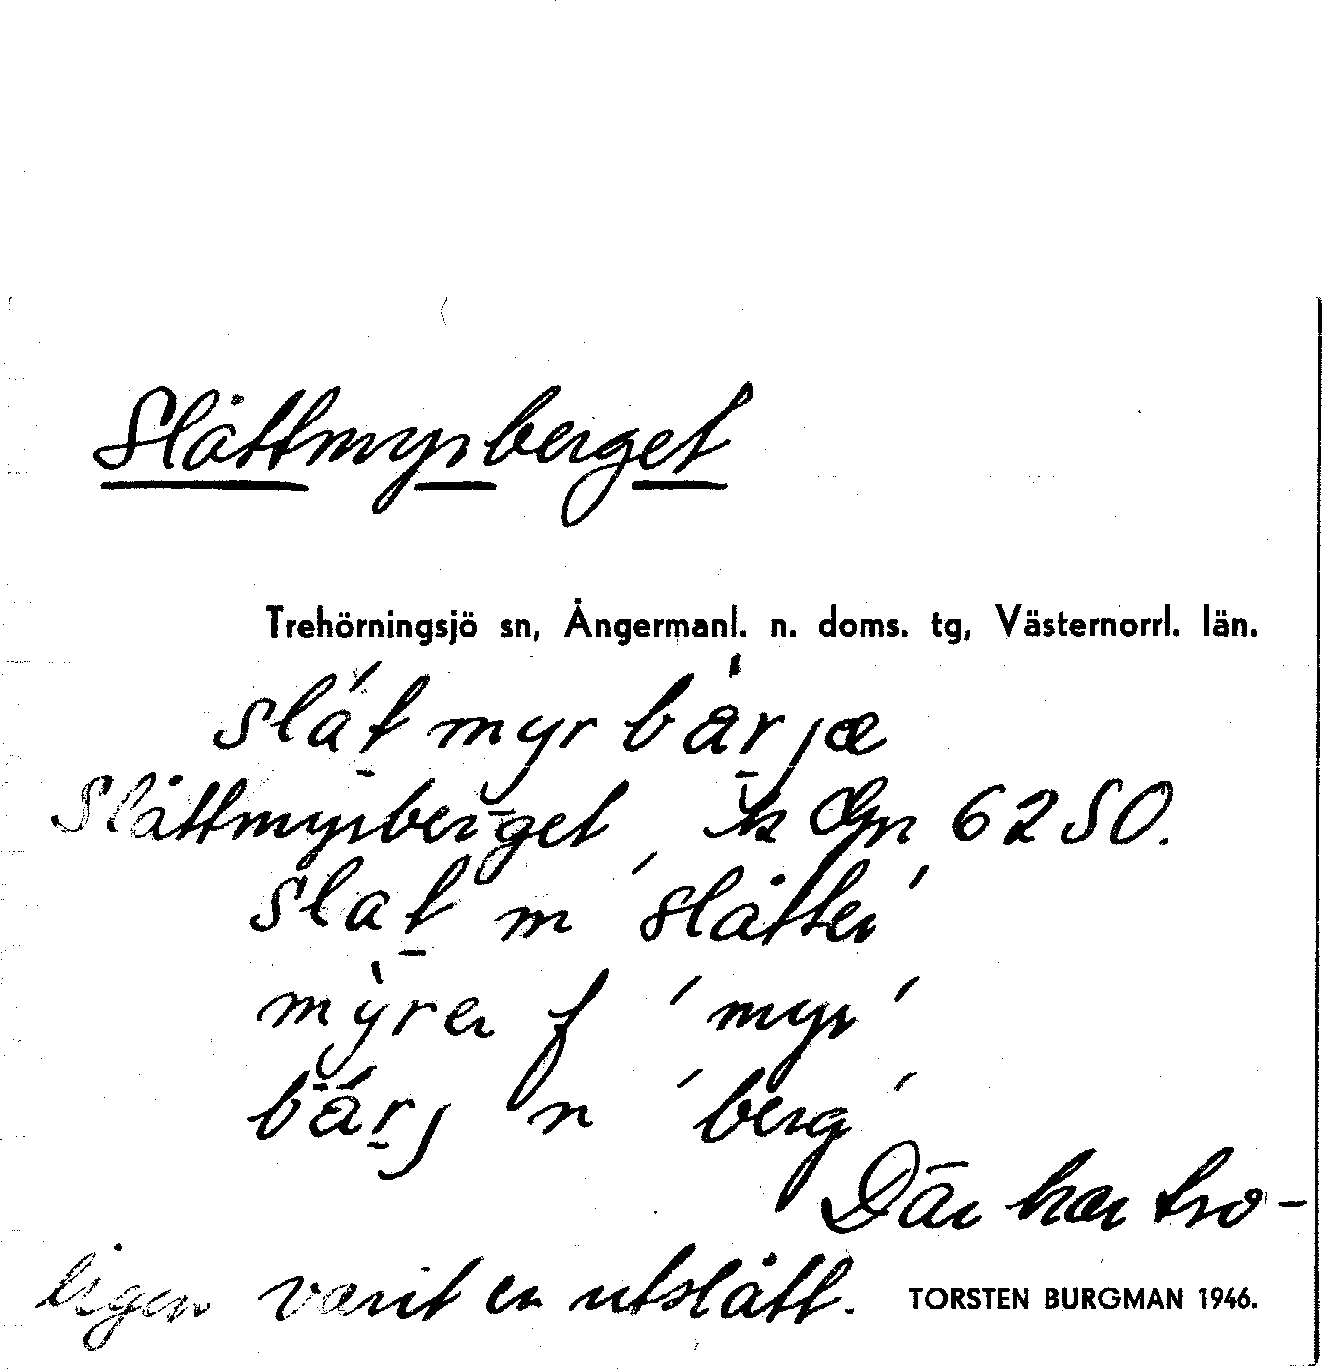 Slåttmyrberget
Trehörningsjö sn, Ångermanl. n. doms. tg, Västernorrl. län.
slåt myr bärjæ
Slåttmyrberget, 6250.
slat m 'slåtter'
myren f 'myr'
bärj n 'berg'
Där har tro-
ligen varit en utslått. TORSTEN BURGMAN 1946.